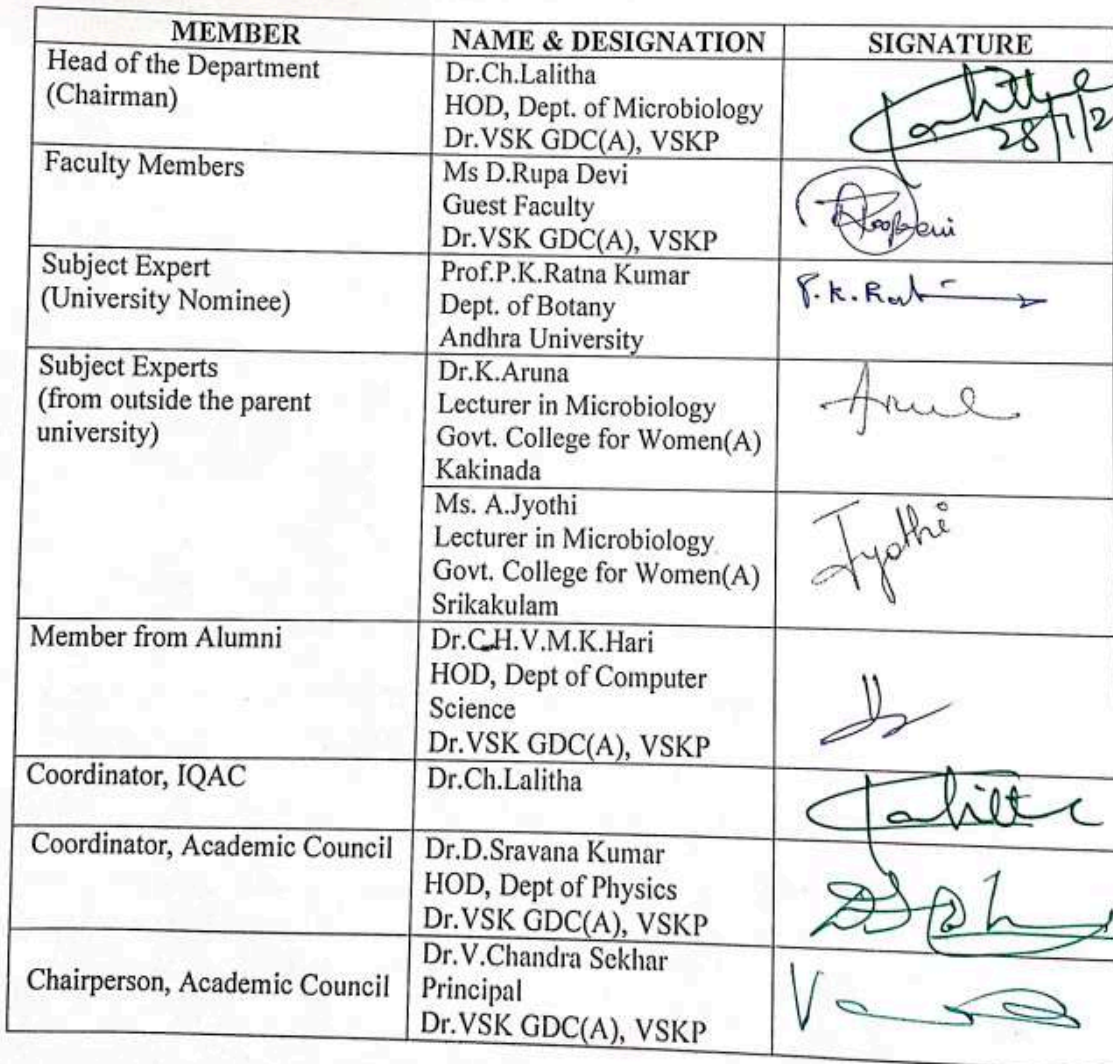 MEMBER
NAME & DESIGNATION
SIGNATURE
Head of the Department
(Chairman)
Dr.Ch.Lalitha
HOD, Dept. of Microbiology
Dr.VSK GDC(A), VSKP
Faculty Members
Ms D.Rupa Devi
Guest Faculty
Dr.VSK GDC(A), VSKP
Subject Expert
(University Nominee)
Prof.P.K.Ratna Kumar
Dept. of Botany
Andhra University
P.K.Rat
Subject Experts
(from outside the parent
university)
Dr.K.Aruna
Lecturer in Microbiology
Govt. College for Women(A)
Kakinada
Ms. A.Jyothi
Lecturer in Microbiology
Govt. College for Women(A)
Srikakulam
Jyothi
Member from Alumni
Dr.C.H.V.M.K.Hari
HOD, Dept of Computer
Science
Dr.VSK GDC(A), VSKP
Coordinator, IQAC
Dr.Ch.Lalitha
Coordinator, Academic Council
Dr.D.Sravana Kumar
HOD, Dept of Physics
Dr.VSK GDC(A), VSKP
Chairperson, Academic Council
Dr.V.Chandra Sekhar
Principal
Dr.VSK GDC(A), VSKP